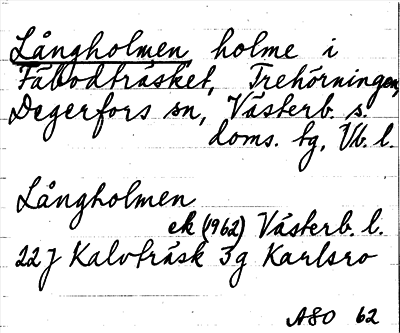 Långholmen holme i
Fäbodträsket, Trehörningen,
Degerfors sn, Västerb. s.
doms. tg, Vb. l.
Långholmen
ek (1962) Västerb. l.
22 J Kalvträsk 3g Karlsro
ASO 62